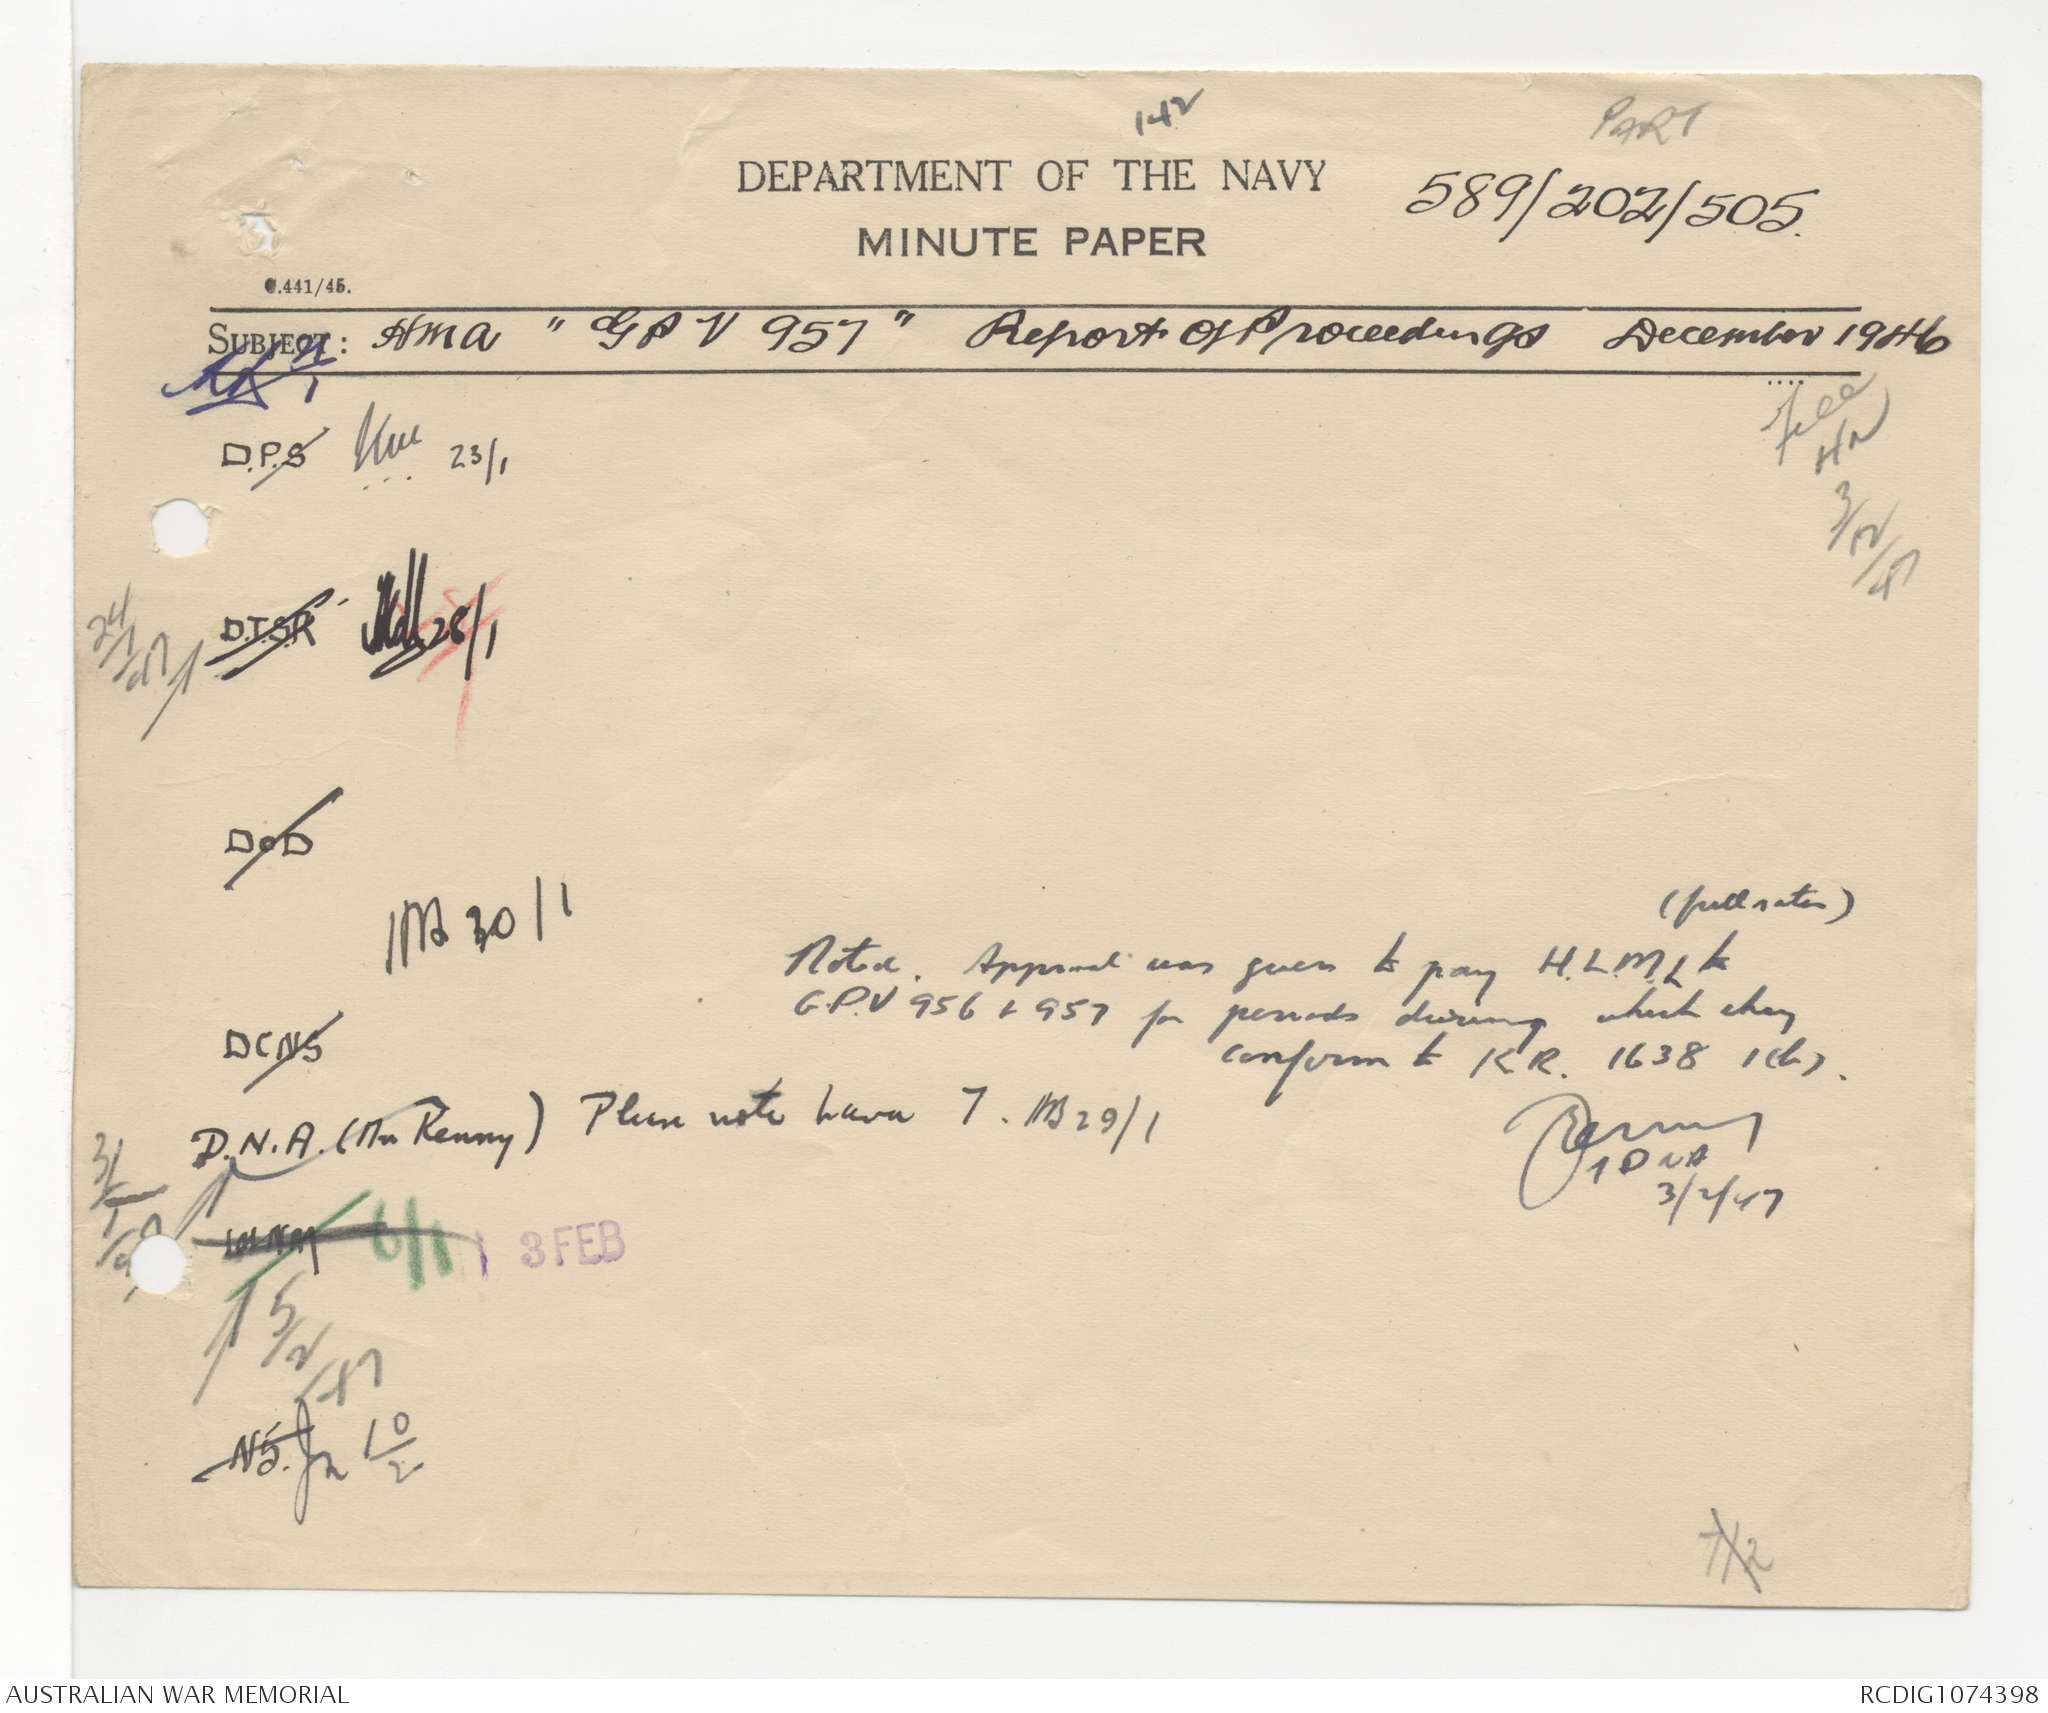 142
PART
DEPARTMENT OF THE NAVY
589/202/505.
MINUTE PAPER
C.441/45.
SUBJECT: HMA "GPV 957" Report of Proceedings December 1946
21/1
File
HN
3/12/47
D.P.S 23/1
24/1/47
D.T.S.R 28/1
DOD
30/1
(full rates)
Noted. Approval was given to pay H.L.M.L to
G.P.V 956 & 957 for periods during which they
conform to K R. 1638 1(b).
DCNS
D.N.A. (Mr Kenny) Please note para 7. 29/1
DNA
3/2/47
31/1/47
6/1 3 FEB
5/2/47
N5. 10/2
7/12
AUSTRALIAN WAR MEMORIAL
RCDIG1074398